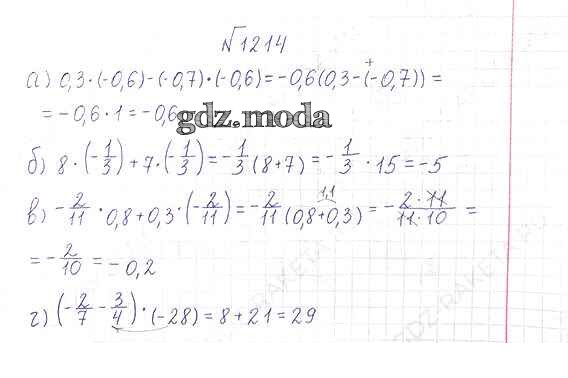 №1214
а) 0,3·(-0,6)-(-0,7)·(-0,6)=-0,6(0,3-(-0,7))=
+
=-0,6·1=-0,6
gdz.moda
б) 8·(-1/3)+7·(-1/3)=-1/3(8+7)=-1/3·15=-5
1,1
в) -2/11·0,8+0,3·(-2/11)=-2/11(0,8+0,3)=-2·11/11·10=
=-2/10=-0,2
г) (-2/7-3/4)·(-28)=8+21=29
GDZ-RAKETA.RU